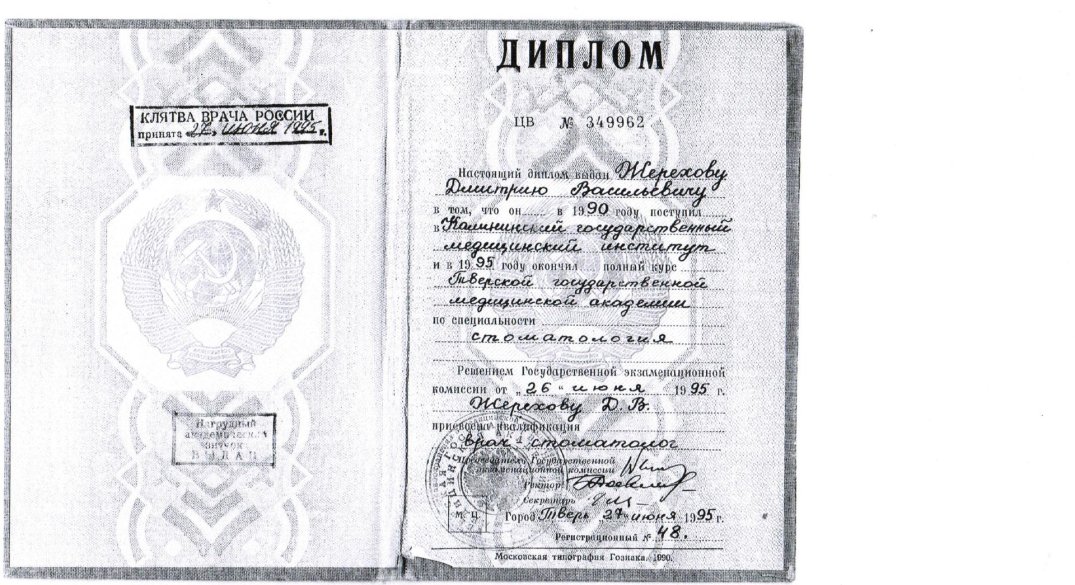 КЛЯТВА ВРАЧА РОССИИ
принята „27„ июня 1995 г.
Нагрудный
академический
значок
ВЫДАН
ДИПЛОМ
ЦВ № 349962
Настоящий диплом выдан Жерехову
Дмитрию Васильевичу
в том, что он...... в 1990 году поступил......
в Калининский государственный
медицинский институт
и в 1995 году окончил... полный курс
Тверской государственной
медицинской академии
по специальности
стоматология
Решением Государственной экзаменационной
комиссии от „26“ июня 1995 г.
Жерехову Д. В.
присвоена квалификация
врач стоматолог
Председатель Государственной
экзаменационной комиссии
Ректор
Секретарь
М. П.
Город Тверь 27 „июня 1995 г.
Регистрационный № 48.
Московская типография Гознака. 1990.